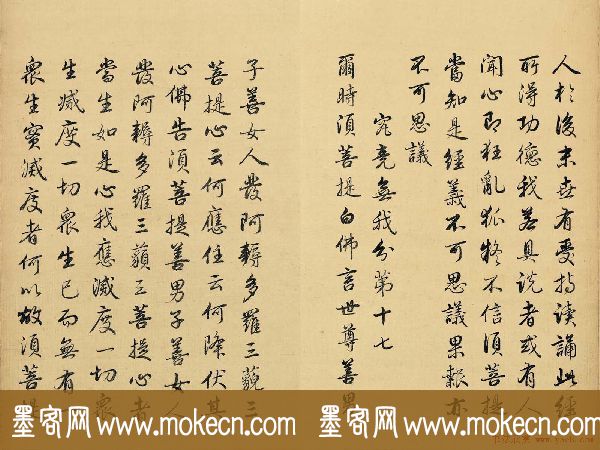 人於後末世有受持读誦此經
所得功德我若具说者或有人
聞心即狂亂狐疑不信須菩提
當知是經義不可思議果報亦
不可思議
究竟無我分第十七
爾時須菩提白佛言世尊善男
子善女人發阿耨多羅三藐三
菩提心云何應住云何降伏其
心佛告須菩提善男子善女人
發阿耨多羅三藐三菩提心者
當生如是心我應滅度一切衆
生滅度一切衆生已而無有一
衆生實滅度者何以故須菩提
墨客网 www.mokecn.com 墨客网 www.mokecn.com